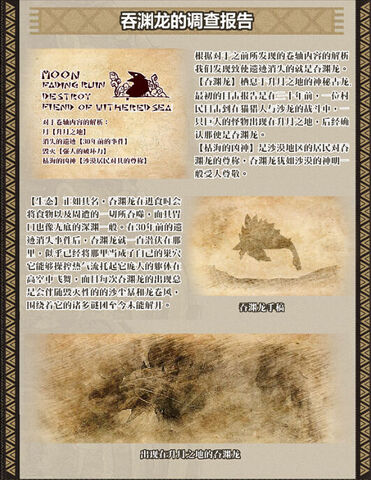 吞渊龙的调查报告
MOON
FADING RUIN
DESTROY
FIEND OF WITHERED SEA
对于卷轴内容的解析:
月【升月之地】
消失的遗迹【30年前的事件】
毁灭【强大的破坏力】
枯海的凶神【沙漠居民对其的尊称】
根据对于之前所发现的卷轴内容的解析
我们发现致使遗迹消失的就是吞渊龙。
【吞渊龙】栖息于升月之地的神秘古龙,
最初的目击报告是在三十年前,一位村
民目击到在猫猎人与沙龙的战斗中,一
只巨大的怪物出现在升月之地,后经确
认那便是吞渊龙。
【枯海的凶神】是沙漠地区的居民对吞
渊龙的尊称,吞渊龙犹如沙漠的神明一
般受人尊敬。
【生态】正如其名,吞渊龙在进食时会
将食物以及周遭的一切所吞噬,而其胃
口也像无底的深渊一般。在30年前的遗
迹消失事件后,吞渊龙就一直潜伏在那
里,似乎已经将那里当成了自己的巢穴
它能够操控热气流托起它庞大的躯体在
高空中飞舞,而且每次吞渊龙的出现总
是会伴随毁灭性的的沙尘暴和龙卷风,
围绕着它的诸多谜团至今未能解开。
吞渊龙手稿
出现在升月之地的吞渊龙